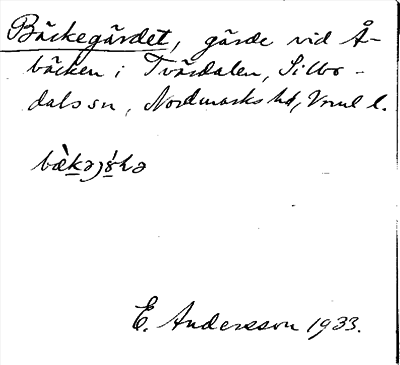 Bäckegärdet, gärde vid Å-
bäcken i Tvärdalen, Silbo-
dals sn, Nordmarks hd, Vrml l.
E. Andersson 1933.